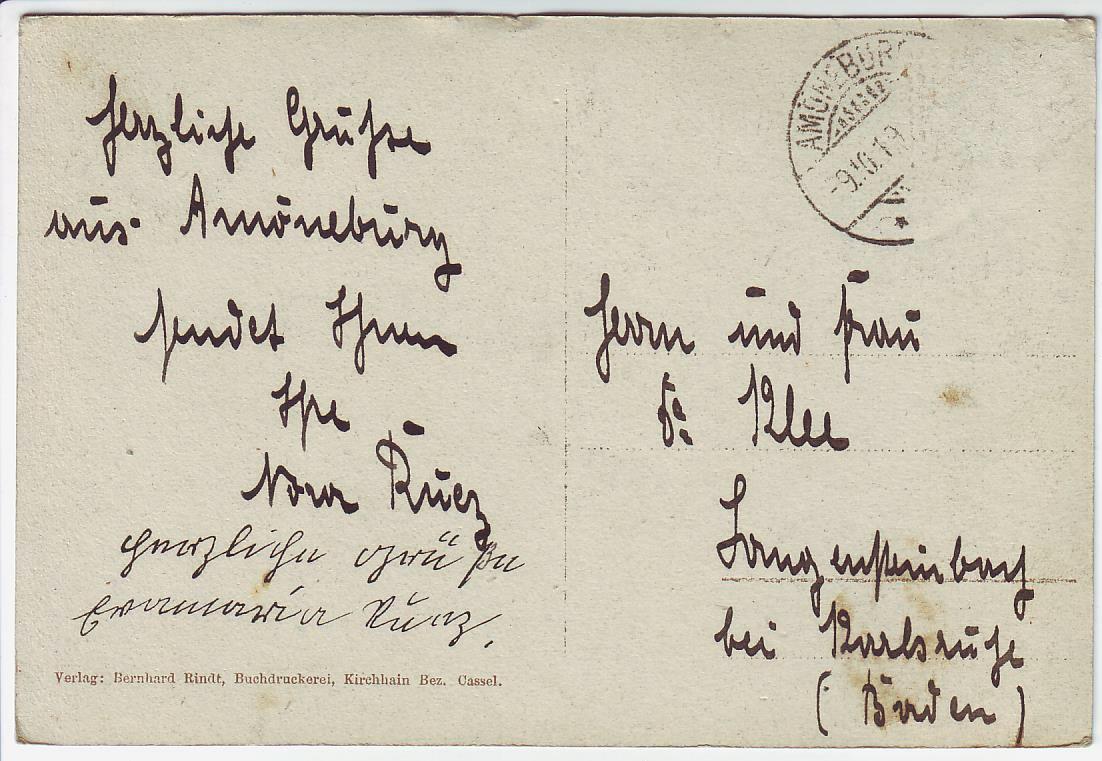 Herzliche Grüße
aus Amöneburg
sendet Ihnen
Ihre
Nora Kunz
Herzliche Grüße
Evamaria Kunz.
Verlag: Bernhard Rindt, Buchdruckerei, Kirchhain Bez. Cassel.
AMÖNEBURG
-9.10.19
Herrn und Frau
Dr. Klee
Langensteinbach
bei Karlsruhe
(Baden)